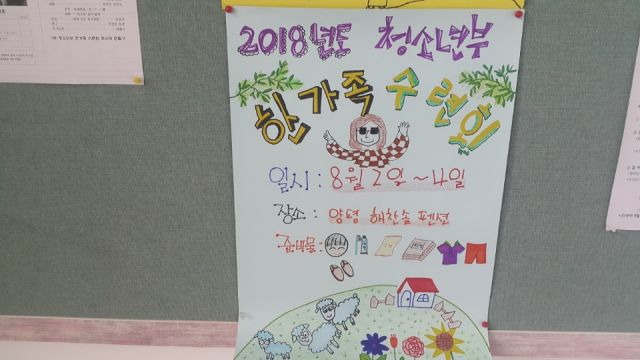 2018년도 청소년부
한가족 수련회
일시 : 8월 2일 ~ 4일
장소 : 양평 해찬솔 펜션
준비물 :